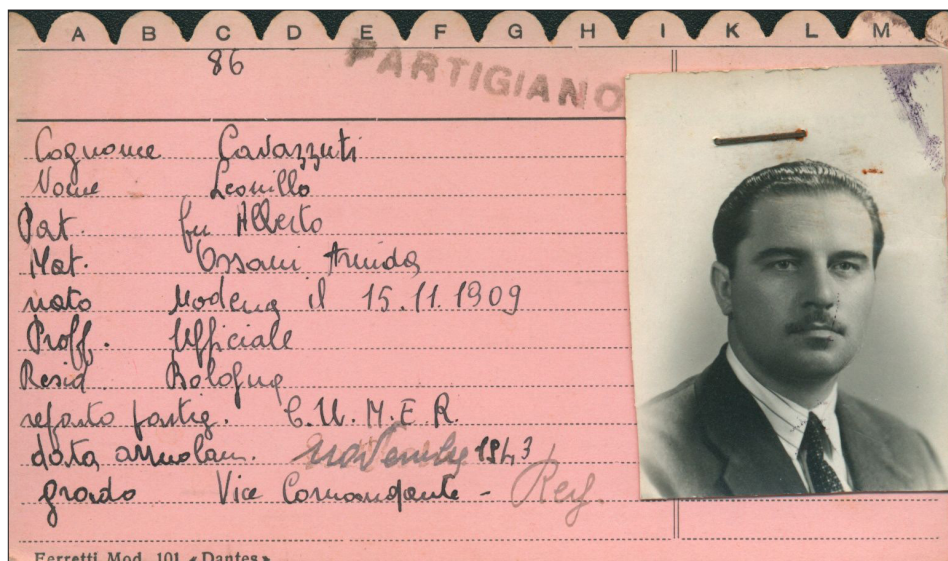 A B C D E F G H I K L M
86
PARTIGIANO
Cognome Cavazzuti
Nome Leonillo
Pat. fu Alberto
Mat. Ossani Armida
nato Modena il 15.11.1909
Proff. Ufficiale
Resid. Bologna
reparto partig. C.U.M.E.R.
data arruolam. novembre 1943
grado Vice Comandante -
Ferretti Mod. 101 «Dantes»